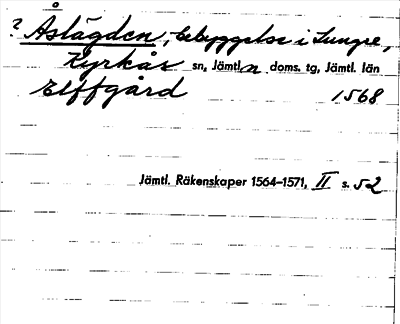 ? Åslägden, bebyggelse i Lunge,
Kyrkås sn, Jämtl. n doms. tg, Jämtl. län
Elffgård 1568
Jämtl. Räkenskaper 1564–1571, II s. 52